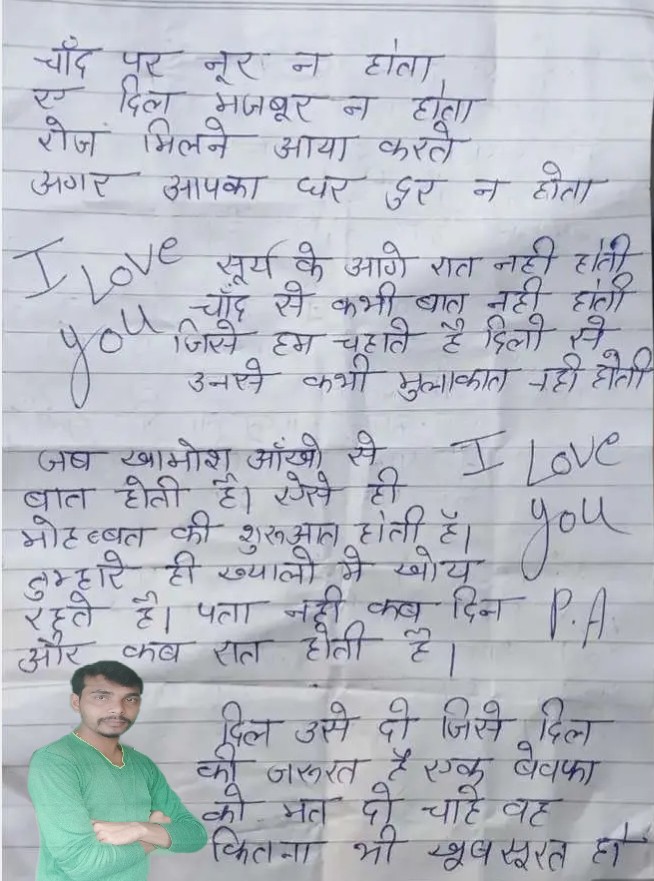 चाँद पर नूर न होता
ए दिल मजबूर न होता
रोज मिलने आया करते
अगर आपका घर दुर न होता
I Love
you
सूर्य के आगे रात नही होती
चाँद से कभी बात नही होती
जिसे हम चहाते है दिलो से
उनसे कभी मुलाकात नही होती
जब खामोश आँखो से
बात होती है। ऐसे ही
मोहब्बत की शुरूआत होती है।
तुम्हारे ही ख्यालो मे खोय
रहते है। पता नही कब दिन
और कब रात होती है।
I Love
you
P.A.
दिल उसे दो जिसे दिल
की जरूरत है एक बेवफा
को मत दो चाहे वह
कितना भी खूबसूरत हो